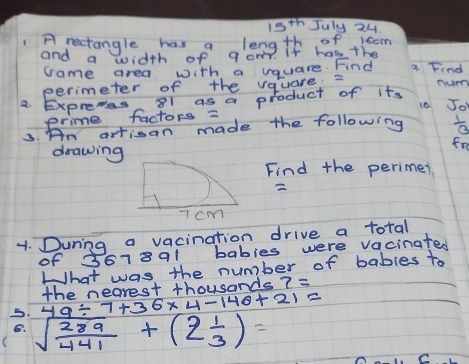 15th July 24.
1. A rectangle has a length of 16cm
and a width of 9cm. It has the
same area with a square. Find
perimeter of the square. =
2. Express 81 as a product of its
prime factors =
3. An artisan made the following
drawing
7cm
Find the perimet
=
4. During a vacination drive a total
of 367891 babies were vacinated
What was the number of babies to
the nearest thousands? =
5. 49 ÷ 7 + 36 × 4 - 146 + 21 =
6. √289/441 + (2 1/3) =
Find
num
10. Jo
1/3
fr